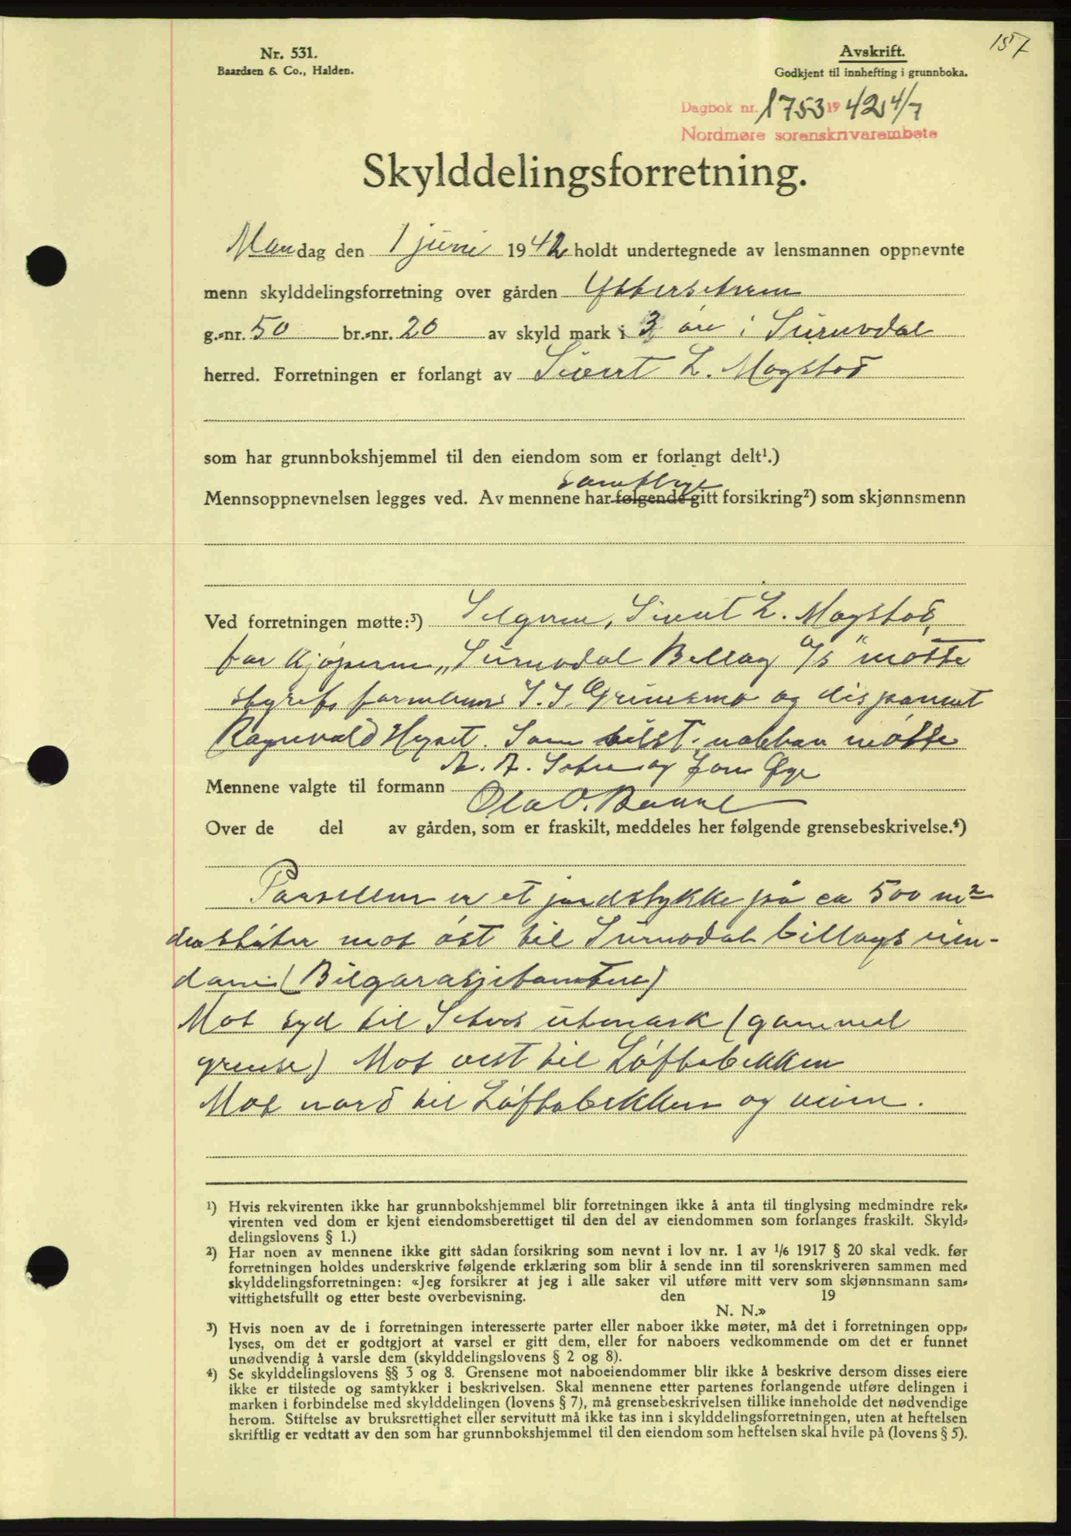 157
Nr. 531.
Baardsen & Co., Halden.
Avskrift.
Godkjent til innhefting i grunnboka.
Dagbok nr. 1753 19 42 4/7
Nordmøre sorenskrivarembete
Skylddelingsforretning.
Mandag den 1 juni 1942 holdt undertegnede av lensmannen oppnevnte
menn skylddelingsforretning over gården
g.-nr. 50 br.-nr. 20 av skyld mark i 3 øre i Surnadal
herred. Forretningen er forlangt av Sivert L. Mogstad
som har grunnbokshjemmel til den eiendom som er forlangt delt¹.)
samtlige
Mennsoppnevnelsen legges ved. Av mennene har følgende gitt forsikring²) som skjønnsmenn
Ved forretningen møtte:³) Selgeren, Sivert L. Mogstad,
for kjøperen „Surnadal Billag A/S" møtte
styrets formann J. J. Grimsmo og disponent
Ragnvald Hyset. Som nabber møtte
og Jon Øye
Mennene valgte til formann
Ola O. Bævre
Over de del av gården, som er fraskilt, meddeles her følgende grensebeskrivelse.⁴)
Parsellen er et jordstykke på ca 500 m²
den støter mot øst til Surnadal billags eien-
dom (Bilgarasjetomten)
Mot syd til utmark (gammel
grense) Mot vest til Løftabekken
Mot nord til Løftabekken og veien.
¹) Hvis rekvirenten ikke har grunnbokshjemmel blir forretningen ikke å anta til tinglysing medmindre rek-
virenten ved dom er kjent eiendomsberettiget til den del av eiendommen som forlanges fraskilt. Skyld-
delingslovens § 1.)
²) Har noen av mennene ikke gitt sådan forsikring som nevnt i lov nr. 1 av 1/6 1917 § 20 skal vedk. før
forretningen holdes underskrive følgende erklæring som blir å sende inn til sorenskriveren sammen med
skylddelingsforretningen: «Jeg forsikrer at jeg i alle saker vil utføre mitt verv som skjønnsmann sam-
vittighetsfullt og etter beste overbevisning. den 19
N. N.»
³) Hvis noen av de i forretningen interesserte parter eller naboer ikke møter, må det i forretningen opp-
lyses, om det er godtgjort at varsel er gitt dem, eller for naboers vedkommende om det er funnet
unødvendig å varsle dem (skylddelingslovens § 2 og 8).
⁴) Se skylddelingslovens §§ 3 og 8. Grensene mot naboeiendommer blir ikke å beskrive dersom disses eiere
ikke er tilstede og samtykker i beskrivelsen. Skal mennene etter partenes forlangende utføre delingen i
marken i forbindelse med skylddelingen (lovens § 7), må grensebeskrivelsen tillike inneholde det nødvendige
herom. Stiftelse av bruksrettighet eller servitutt må ikke tas inn i skylddelingsforretningen, uten at heftelsen
skriftlig er vedtatt av den som har grunnbokshjemmel til den eiendom som heftelsen skal hvile på (lovens § 5).